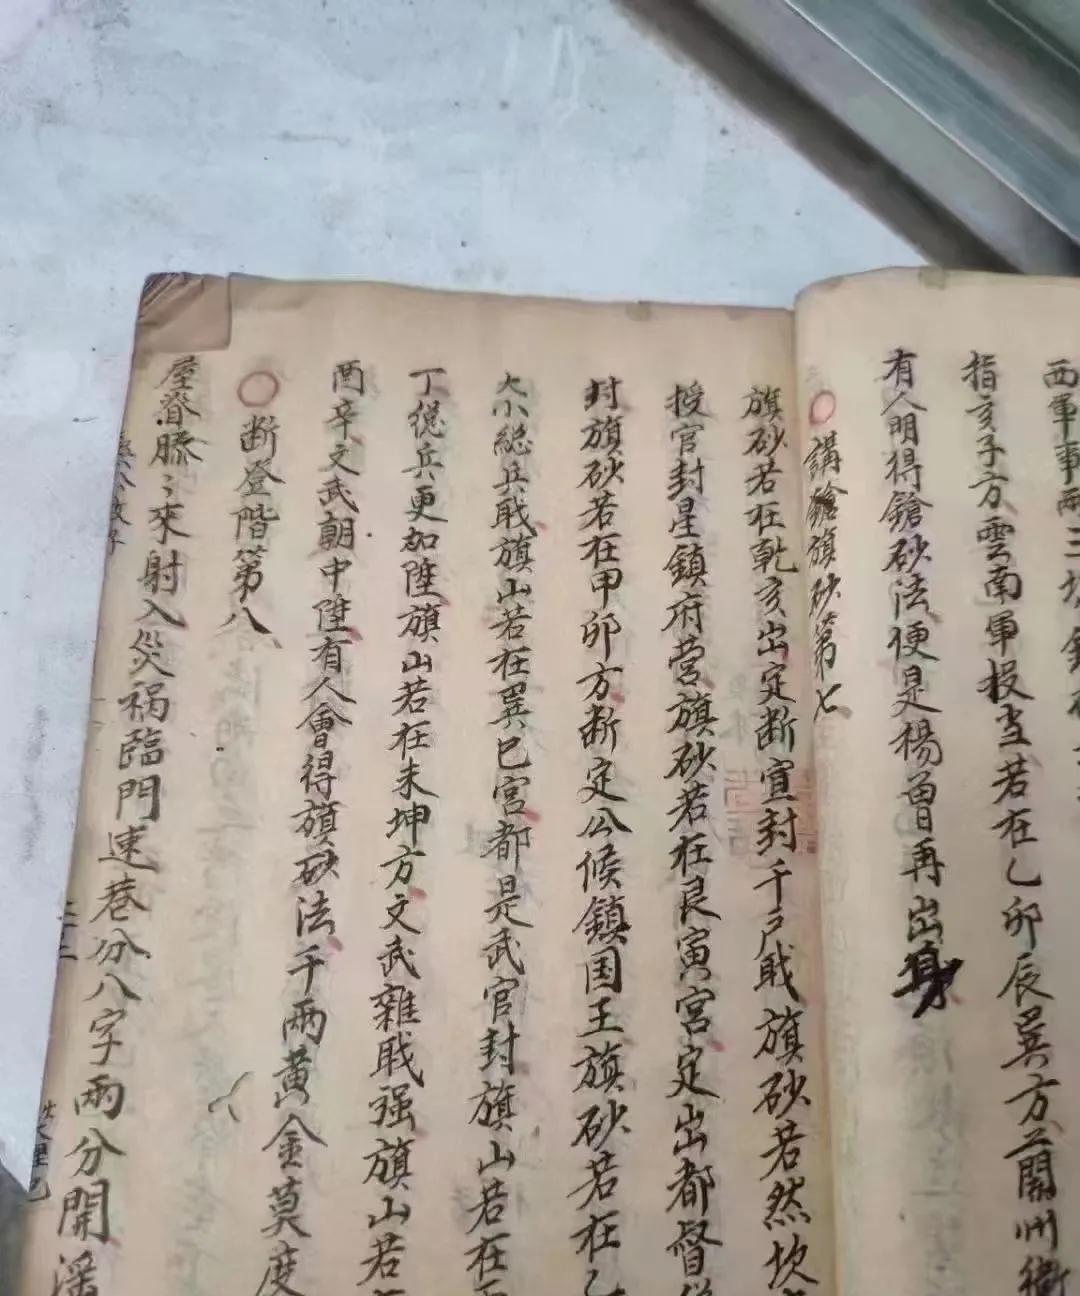 西軍事兩三
指亥子方雲南軍投当若在乙卯辰巽方二關州衛
有人明得鎗砂法便是楊曾再出身
講鎗旗砂第七
旗砂若在乾亥出定断宣封千戶戝旗砂若然坎
授官封星鎮府营旗砂若在艮寅宮定出都督
封旗砂若在甲卯方断定公候鎮国王旗砂若在乙
大小総兵戝旗山若在巽巳宮都是武官封旗山若在
丁㧾兵更加陞旗山若在未坤方文武雜戝强旗山若
酉辛文武朝中陞有人會得旗砂法千兩黄金莫度
断登階第八
屋脊滕〻來射入災禍臨門連巷分八字兩分開滛